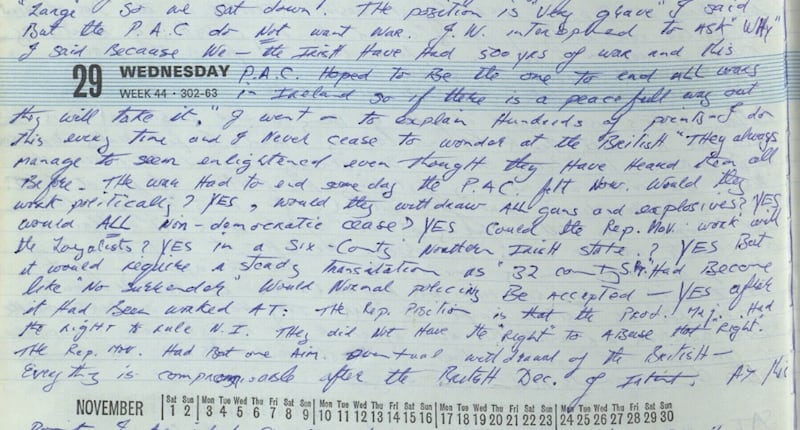 "Large" So we sat down. The position is "Very grave" I said
But the P.A.C do Not want War. J.N. interupted to ask "WHY"
I said Because We – the Irish Have Had 500 yrs of war and this
29 WEDNESDAY P.A.C. Hoped to be the one to end all wars
WEEK 44 · 302-63 in Ireland so if there is a peacefull way out
they will take it." I went on to explain Hundreds of points – I do
this every time and I Never cease to wonder at the British "They always
manage to seem enlightened even thought they Have Heard them all
Before. The war Had to end some day the P.A.C. felt Now. Would they
work politically? YES, would they withdraw ALL guns and explosives? YES
would ALL Non-democratic cease? YES Could the Rep. Mov. work with
the Loyalists? YES in a Six-County Northern Irish state.? YES But
it would require a steady Translation as "32 county Had Become
like "No surrender" Would Normal policing Be Accepted – YES after
it Had Been worked AT: The Rep. Position is that the Prod. Maj. Had
the right to rule N.I. They did Not Have the "Right" to ABuse that Right.
The Rep. Mov. Had But one Aim. eventual withdrawal of the British –
Everything is compromisable after the British Dec. of Intent.
NOVEMBER
Sat Sun Mon Tue Wed Thu Fri Sat Sun Mon Tue Wed Thu Fri Sat Sun Mon Tue Wed Thu Fri Sat Sun Mon Tue Wed Thu Fri Sat Sun
1 2 3 4 5 6 7 8 9 10 11 12 13 14 15 16 17 18 19 20 21 22 23 24 25 26 27 28 29 30